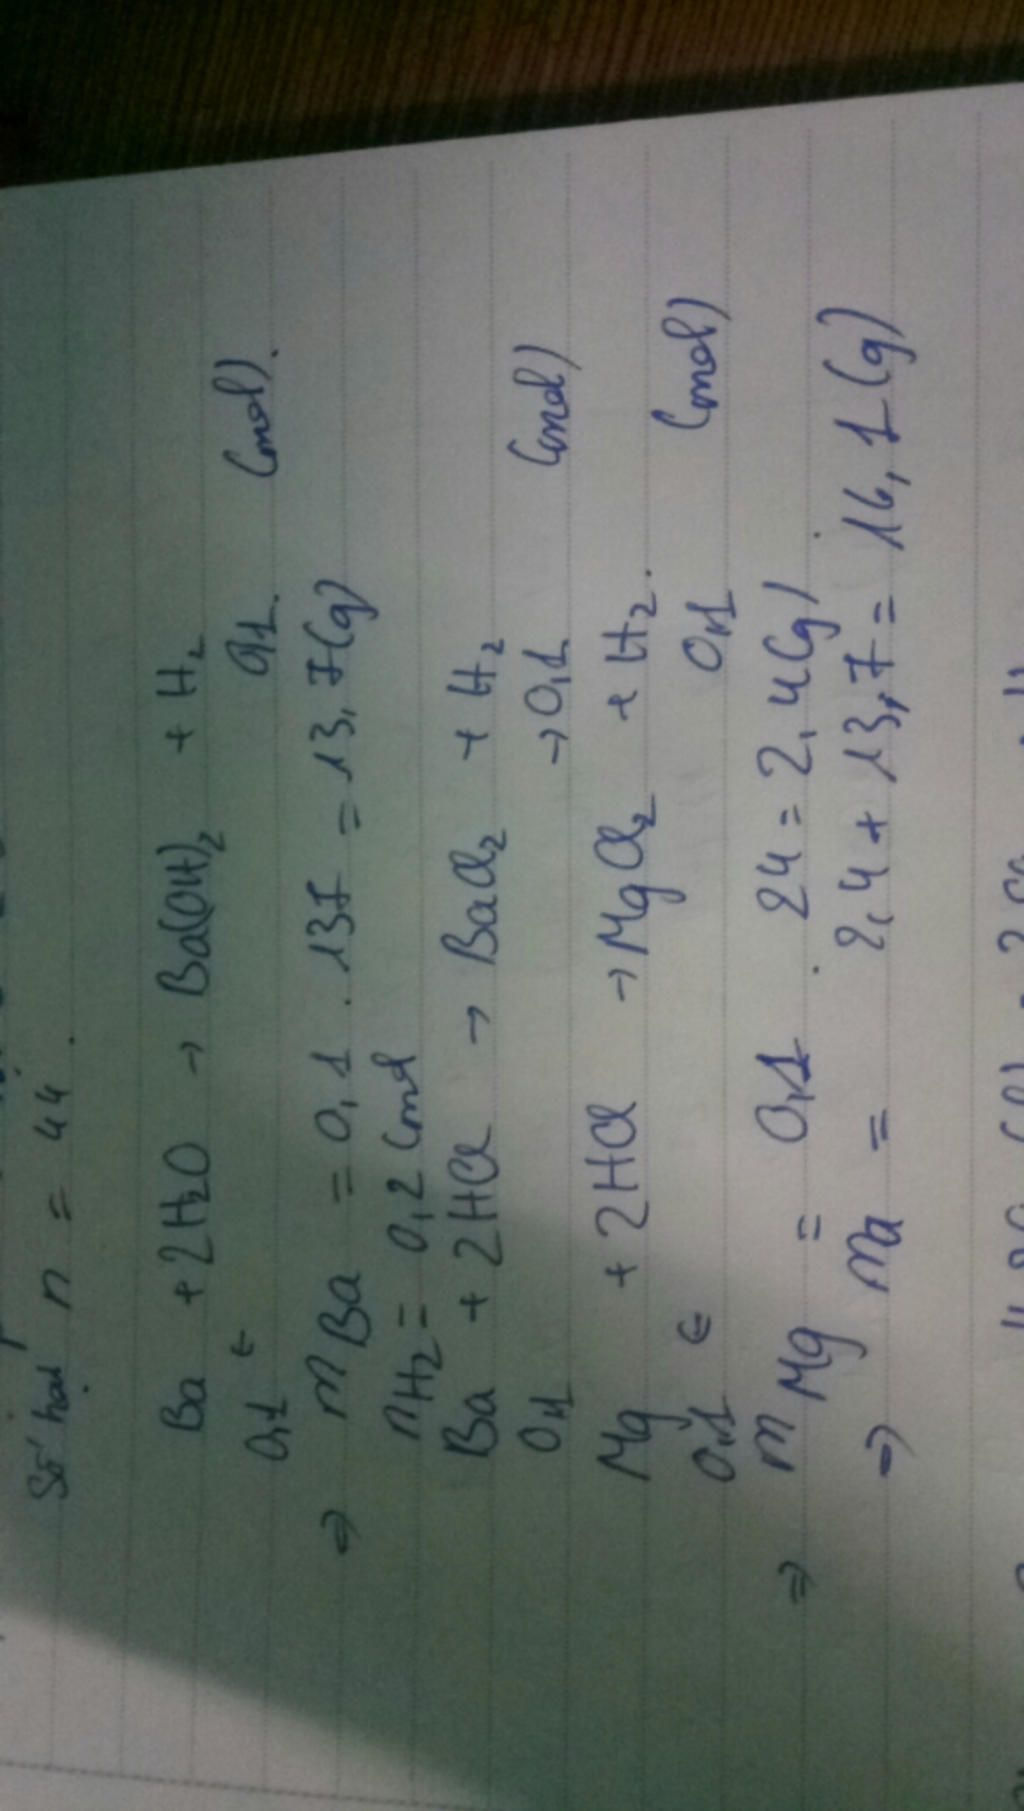 Số hạt n = 44.
Ba + 2H₂O → Ba(OH)₂ + H₂
0,1 ← 0,1. (mol).
⇒ m Ba = 0,1 . 137 = 13,7(g)
nH₂ = 0,2 (mol
Ba + 2HCl → BaCl₂ + H₂
0,1 → 0,1 (mol)
Mg + 2HCl → MgCl₂ + H₂.
0,1 ← 0,1 (mol)
⇒ m Mg = 0,1 . 24 = 2,4(g)
⇒ ma = 2,4 + 13,7 = 16,1(g)